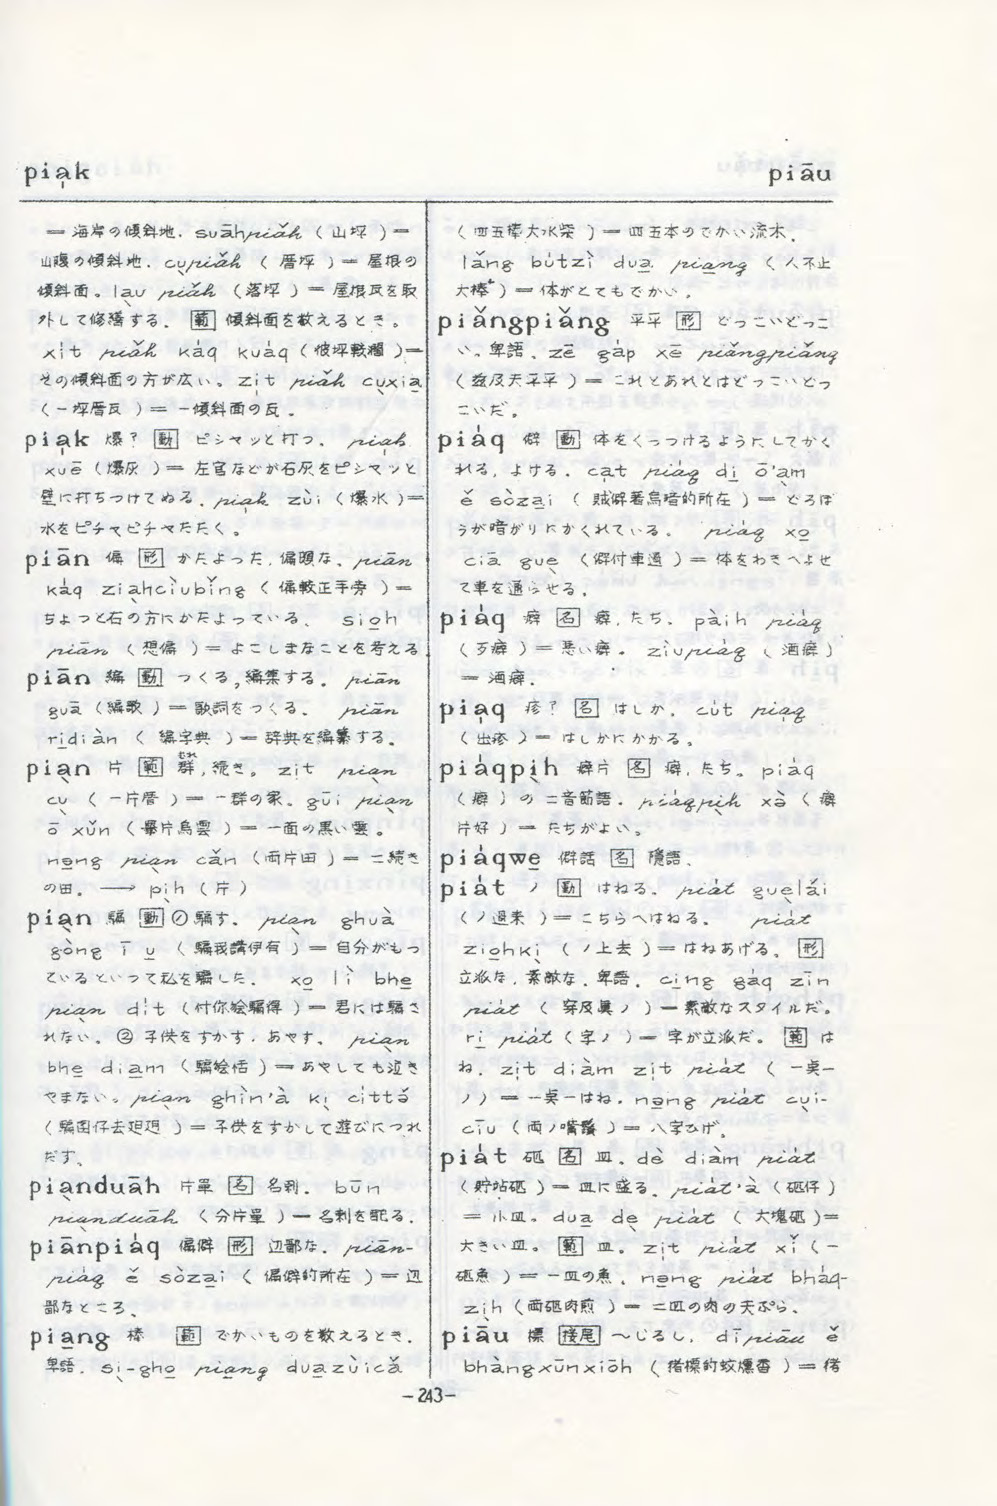 piȧk
piāu
= 海岸の傾斜地. suāhpiǎh (山坪) =
山腹の傾斜地. cụpiǎh (厝坪) = 屋根の
傾斜面。lau piǎh (落坪) = 屋根瓦を取
外して修膳する. 範 傾斜面を数えるとき。
xit piǎh káq kuàq (彼坪較濶) =
その傾斜面の方が広い。zit piǎh cuxia
(一坪厝瓦) = 一傾斜面の瓦.
piak 爆? 動 ピシャッと打つ. piak
xuē (爆灰) = 左官などが石灰をピシャッと
壁に打ちつけてぬる. piak zùi (爆水) =
水をピチャピチャたたく。
piān 偏 形 かたよった, 偏頗な. piān
káq ziahciubǐng (偏較正手旁) =
ちょっと右の方にかたよっている. sioh
piān (想偏) = よこしまなことを考える
piān 編 動 つくる, 編集する. piān
guā (編歌) = 歌詞をつくる. piān
ridiàn (編字典) = 辞典を編纂する.
pian 片 範 群, 続き。zit pian
cu (一片厝) = 一群の家. gūi pian
ō xǔn (舉片烏雲) = 一面の黒い雲。
nəng pian cǎn (両片田) = 二続き
の田. → pih (片)
pian 騙 動 ① 騙す. pian ghuà
gòng ī u (騙我講伊有) = 自分がもっ
ているといって私を騙した. xo lì bhe
pian dit (付你絵騙得) = 君には騙さ
れない。② 子供をすかす, あやす. pian
bhe diam (騙絵恬) = あやしても泣き
やまない。pian ghìn'à ki cittə
(騙囝仔去𨑨迌) = 子供をすかして遊びにつれ
だす.
pianduāh 片單 名 名刺. būn
pianduāh (分片單) = 名刺を配る.
piānpiáq 偏僻 形 辺鄙な. piān-
piáq ě sòzai (偏僻的所在) = 辺
鄙なところ.
piang 棒 範 でかいものを数えるとき.
卑語. si-gho piang duazùicǎ
(四五棒大水柴) = 四五本のでかい流木.
lǎng bútzì dua piang (人不止
大棒) = 体がとてもでかい。
piǎngpiǎng 平平 形 どっこいどっこ
い。卑語. zē gàp xē piǎngpiǎng
(兹及夫平平) = これとあれとはどっこいどっ
こいだ。
piáq 僻 動 体をくっつけるようにしてかく
れる, よける. cat piáq di ō'am
ě sòzai (賊僻著烏暗的所在) = どろぼ
うが暗がりにかくれている. piáq xo
ciā gue (僻付車過) = 体をわきへよせ
て車を通らせる.
piáq 癖 名 癖, たち. pàih piáq
(歹癖) = 悪い癖。ziupiáq (酒癖)
= 酒癖.
piaq 疹? 名 はしか. cút piaq
(出疹) = はしかにかかる。
piáqpih 癖片 名 癖, たち。piáq
(癖) の二音節語. piáqpih xə̀ (癖
片好) = たちがよい。
piáqwe 僻話 名 隠語.
piát ノ 動 はねる. piát guelái
(ノ過来) = こちらへはねる. piát
ziohki (ノ上去) = はねあげる. 形
立派な, 素敵な. 卑語. cing gáq zīn
piát (穿及眞ノ) = 素敵なスタイルだ。
ri piát (字ノ) = 字が立派だ。範 は
ね. zit diàm zit piát (一奌一
ノ) = 一奌一はね. nəng piát cui-
ciū (両ノ嘴鬚) = 八字ひげ.
piát 砸 名 皿. dè diàm piát
(貯坫砸) = 皿に盛る. piát'à (砸仔)
= 小皿. dua de piát (大塊砸) =
大きい皿。範 皿. zit piát xǐ (一
砸魚) = 一皿の魚. nəng piát bháq-
zih (両砸肉煎) = 二皿の肉の天ぷら.
piāu 標 接尾 〜じるし. dīpiāu ě
bhàngxūnxiōh (猪標的蚊燻香) = 猪
-243-